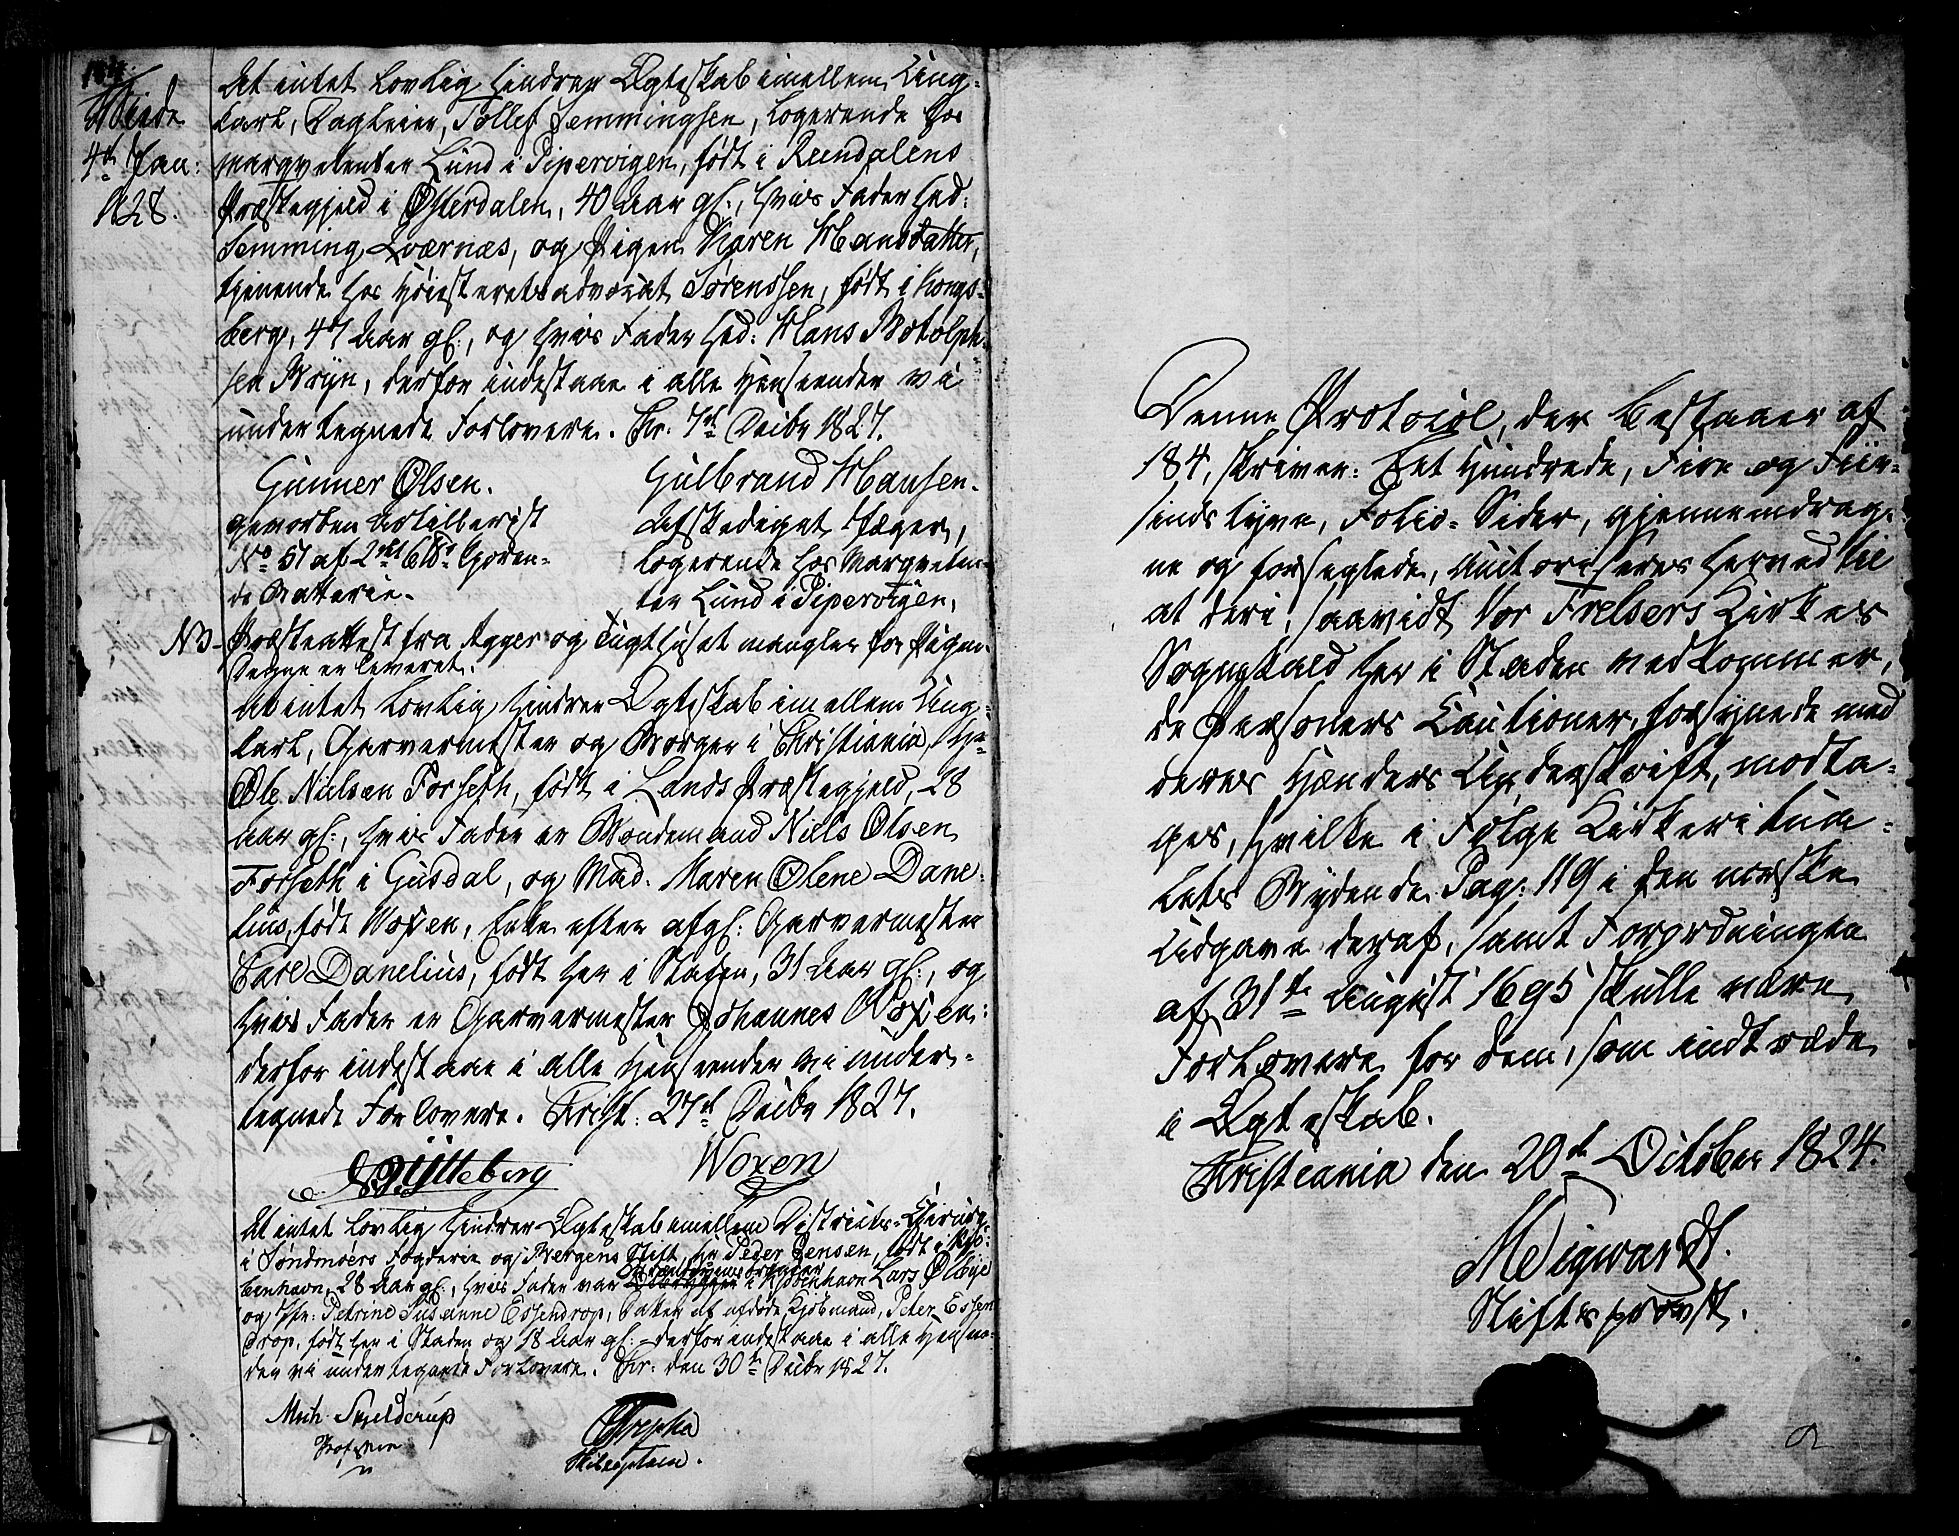 184.
Viede
4de Jan:
1828.
At intet lovlig hindrer Ægteskab imellem Ung-
karl, Dagleier, Tollef Semmingsen, logerende hos
Marqvetenter Lund i Pipervigen, født i Reendalens
Præstegjeld i Østerdalen, 40 Aar gl., hvis Fader hed:
Semming Qværnæs, og Pigen Karen Hansdatter,
tjenende hos Høiesteretsadvokat Sørenssen, født i Kongs-
berg, 47 Aar gl:, og hvis Fader hed: Hans Botolph-
sen Bryn, derfor indestaae i alle Henseender vi
undertegnede Forlovere. Chr: 7de Decbr 1827.
Gunner Olsen.
gevorben Artillerist
No 51 af 2det 6 kjøren-
de Batterie.
Gulbrand Hansen.
Afskediget Jæger,
logerende hos Marqveten-
ter Lund i Pipervigen,
NB. Præsteattest fra Agger og Tugthuset mangler for Pigen.
Denne er leveret.
At intet lovlig hindrer Ægteskab imellem Ung-
karl, Garvermester og Borger i Christiania, Hr
Ole Nielsen Forseth, født i Lands Præstegjeld, 28
Aar gl:, hvis Fader er Bondemand Niels Olsen
Forseth i Gusdal, og Mad. Maren Olene Dane-
lius, født Woxen, Enke efter afgl: Garvermester
Carl Danelius, født her i Staden, 31 Aar gl:, og
hvis Fader er Garvermester Johannes Woxen:
derfor indestaae i alle Henseender vi under-
tegnede Forlovere. Christ: 27de Decbr 1827.
Gÿtteborg
Woxen
At intet lovlig hindrer Ægteskab imellem Districts-Chirurg:
i Søndmøers Fogderie og Bergens Stift, Hr Peder Jensen, født i Kjø-
benhavn, 28 Aar gl:, hvis Fader var i Kjøbenhavn Lars
og Jfr: Petrine Susanne Essendrop, Datter af afdøde Kjøbmand, Peter Essen
drop, født her i Staden og 18 Aar gl: - derfor indestaae i alle Henseen-
der vi undertegnede Forlovere. Chr: den 30te Decbr 1827.
Mich. Skjelderup
Professor
Denne Protocol, der bestaaer af
184, skriver: Eet Hundrede, Fire og Fiir-
sinds tyve, Folio-Sider, gjennemdrag-
ne og forseglede, auctoriseres herved til
at deri, saavidt Vor Frelsers Kirkes
Sognekald her i Staden vedkommer,
de Personers Cautioner, forsynede med
deres Hænders Underskrift, modta-
ges, hvilke i Følge Kirkeritua-
lets Bydende Pag: 119 i den norske
Udgave deraf, samt Forordningen
af 31te August 1695 skulle være
Forlovere for dem, som indtræde
i Ægteskab.
Christiania den 20de October 1824.
MSigwardt.
Stiftsprovst.